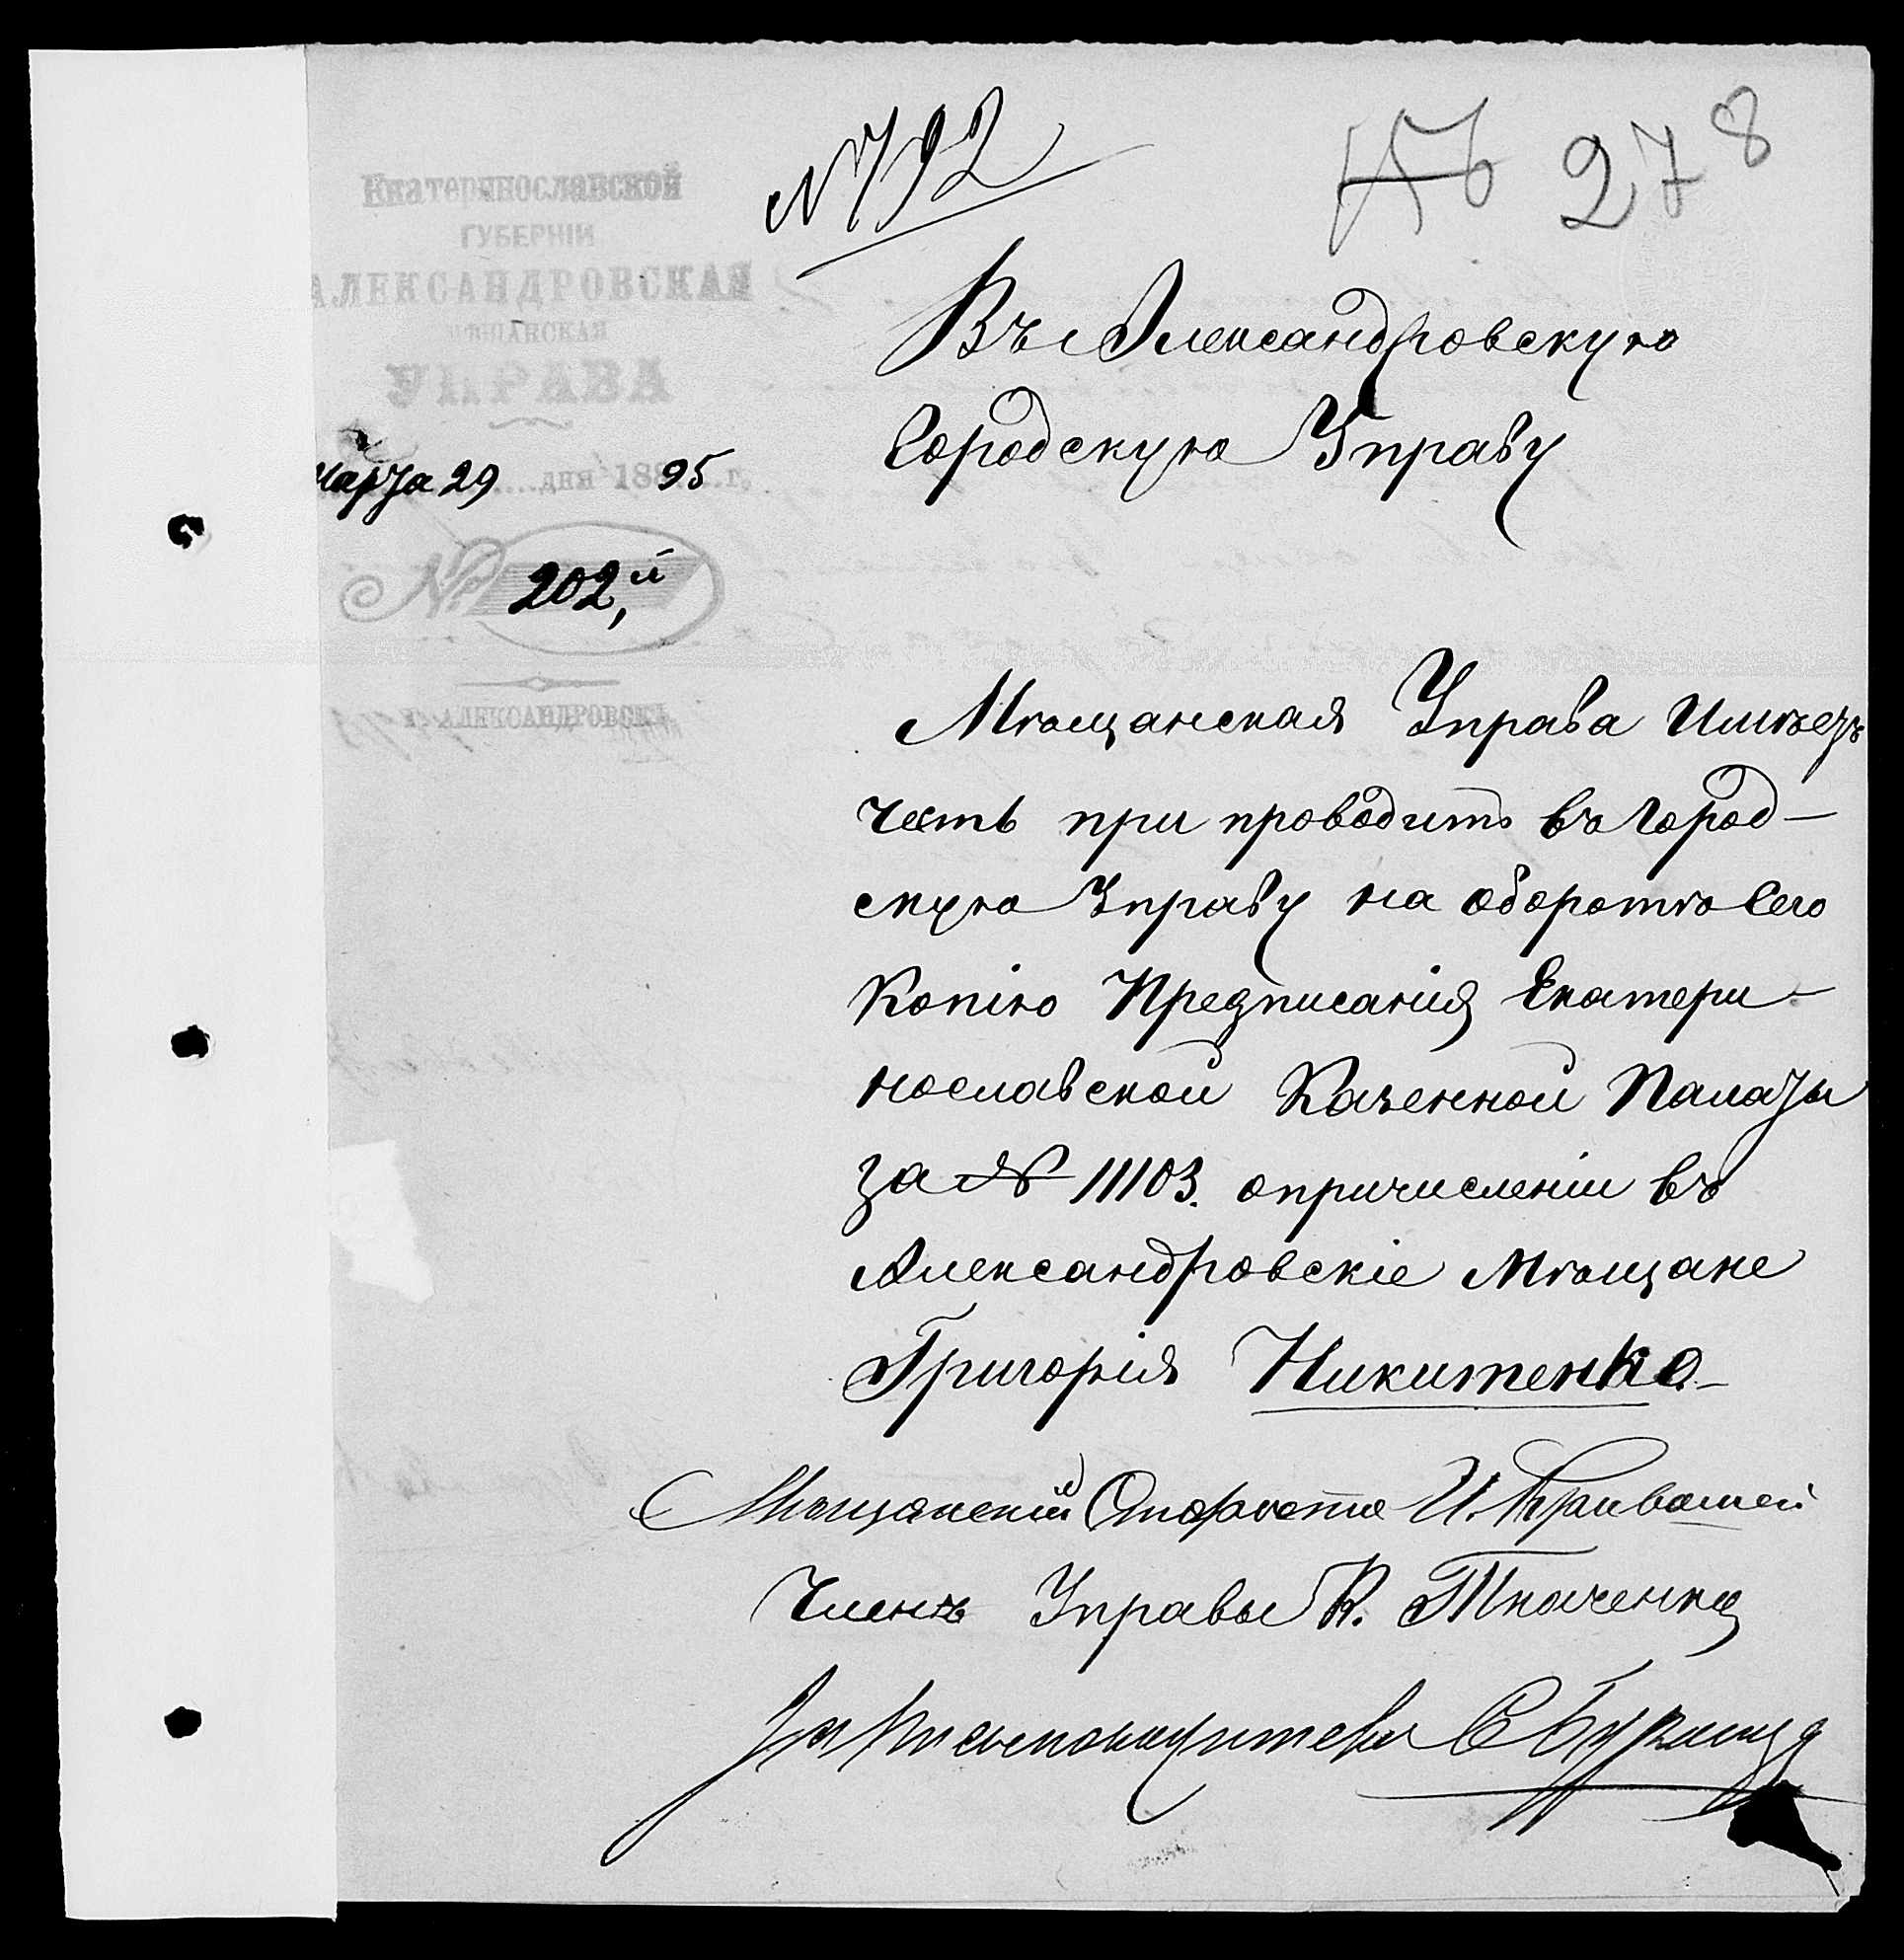 № 792
278
Екатеринославской
ГУБЕРНІИ
АЛЕКСАНДРОВСКАЯ
МѢЩАНСКАЯ
УПРАВА
Марта 29 дня 188 95 г.
№ 202,й
г. АЛЕКСАНДРОВСКЪ
Въ Александровскую
Городскую Управу
Мѣщанская Управа Имѣетъ
честь при проводить въ Город-
скую Управу на оборотѣ Сего
Копію Предписанія Екатери-
нославской Казенной Палаты
за № 11103. о причисленіи въ
Александровскіе Мѣщане
Григорія Никитенко-
Мѣщанскій Староста И. Кривошей
Членъ Управы К. Ткаченко
За Письмоводителя С